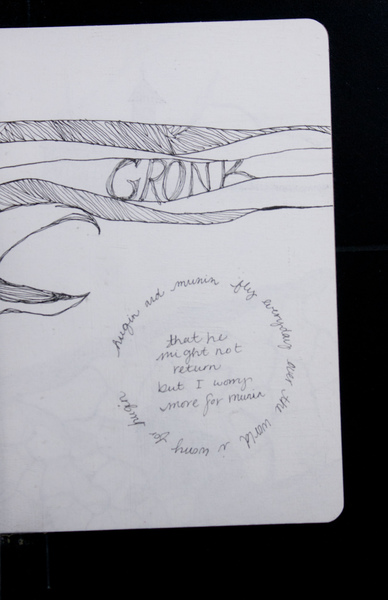 GRONK
hugin and munin fly everyday over the world i worry for hugin
that he
might not
return
but I worry
more for munin